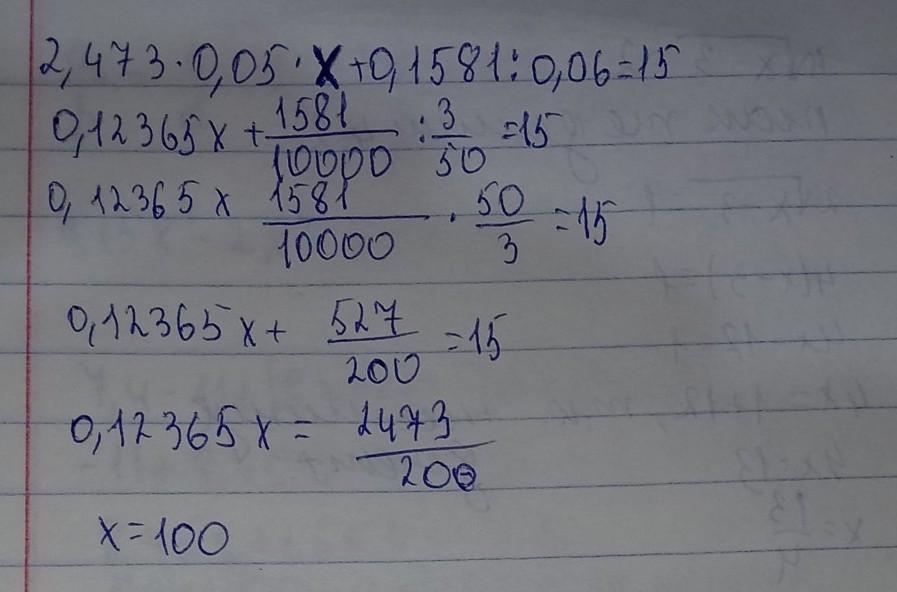 2,473·0,05·x+0,1581:0,06=15
0,12365x+1581/10000:3/50=15
0,12365x 1581/10000·50/3=15
0,12365x+527/200=15
0,12365x=2473/200
x=100